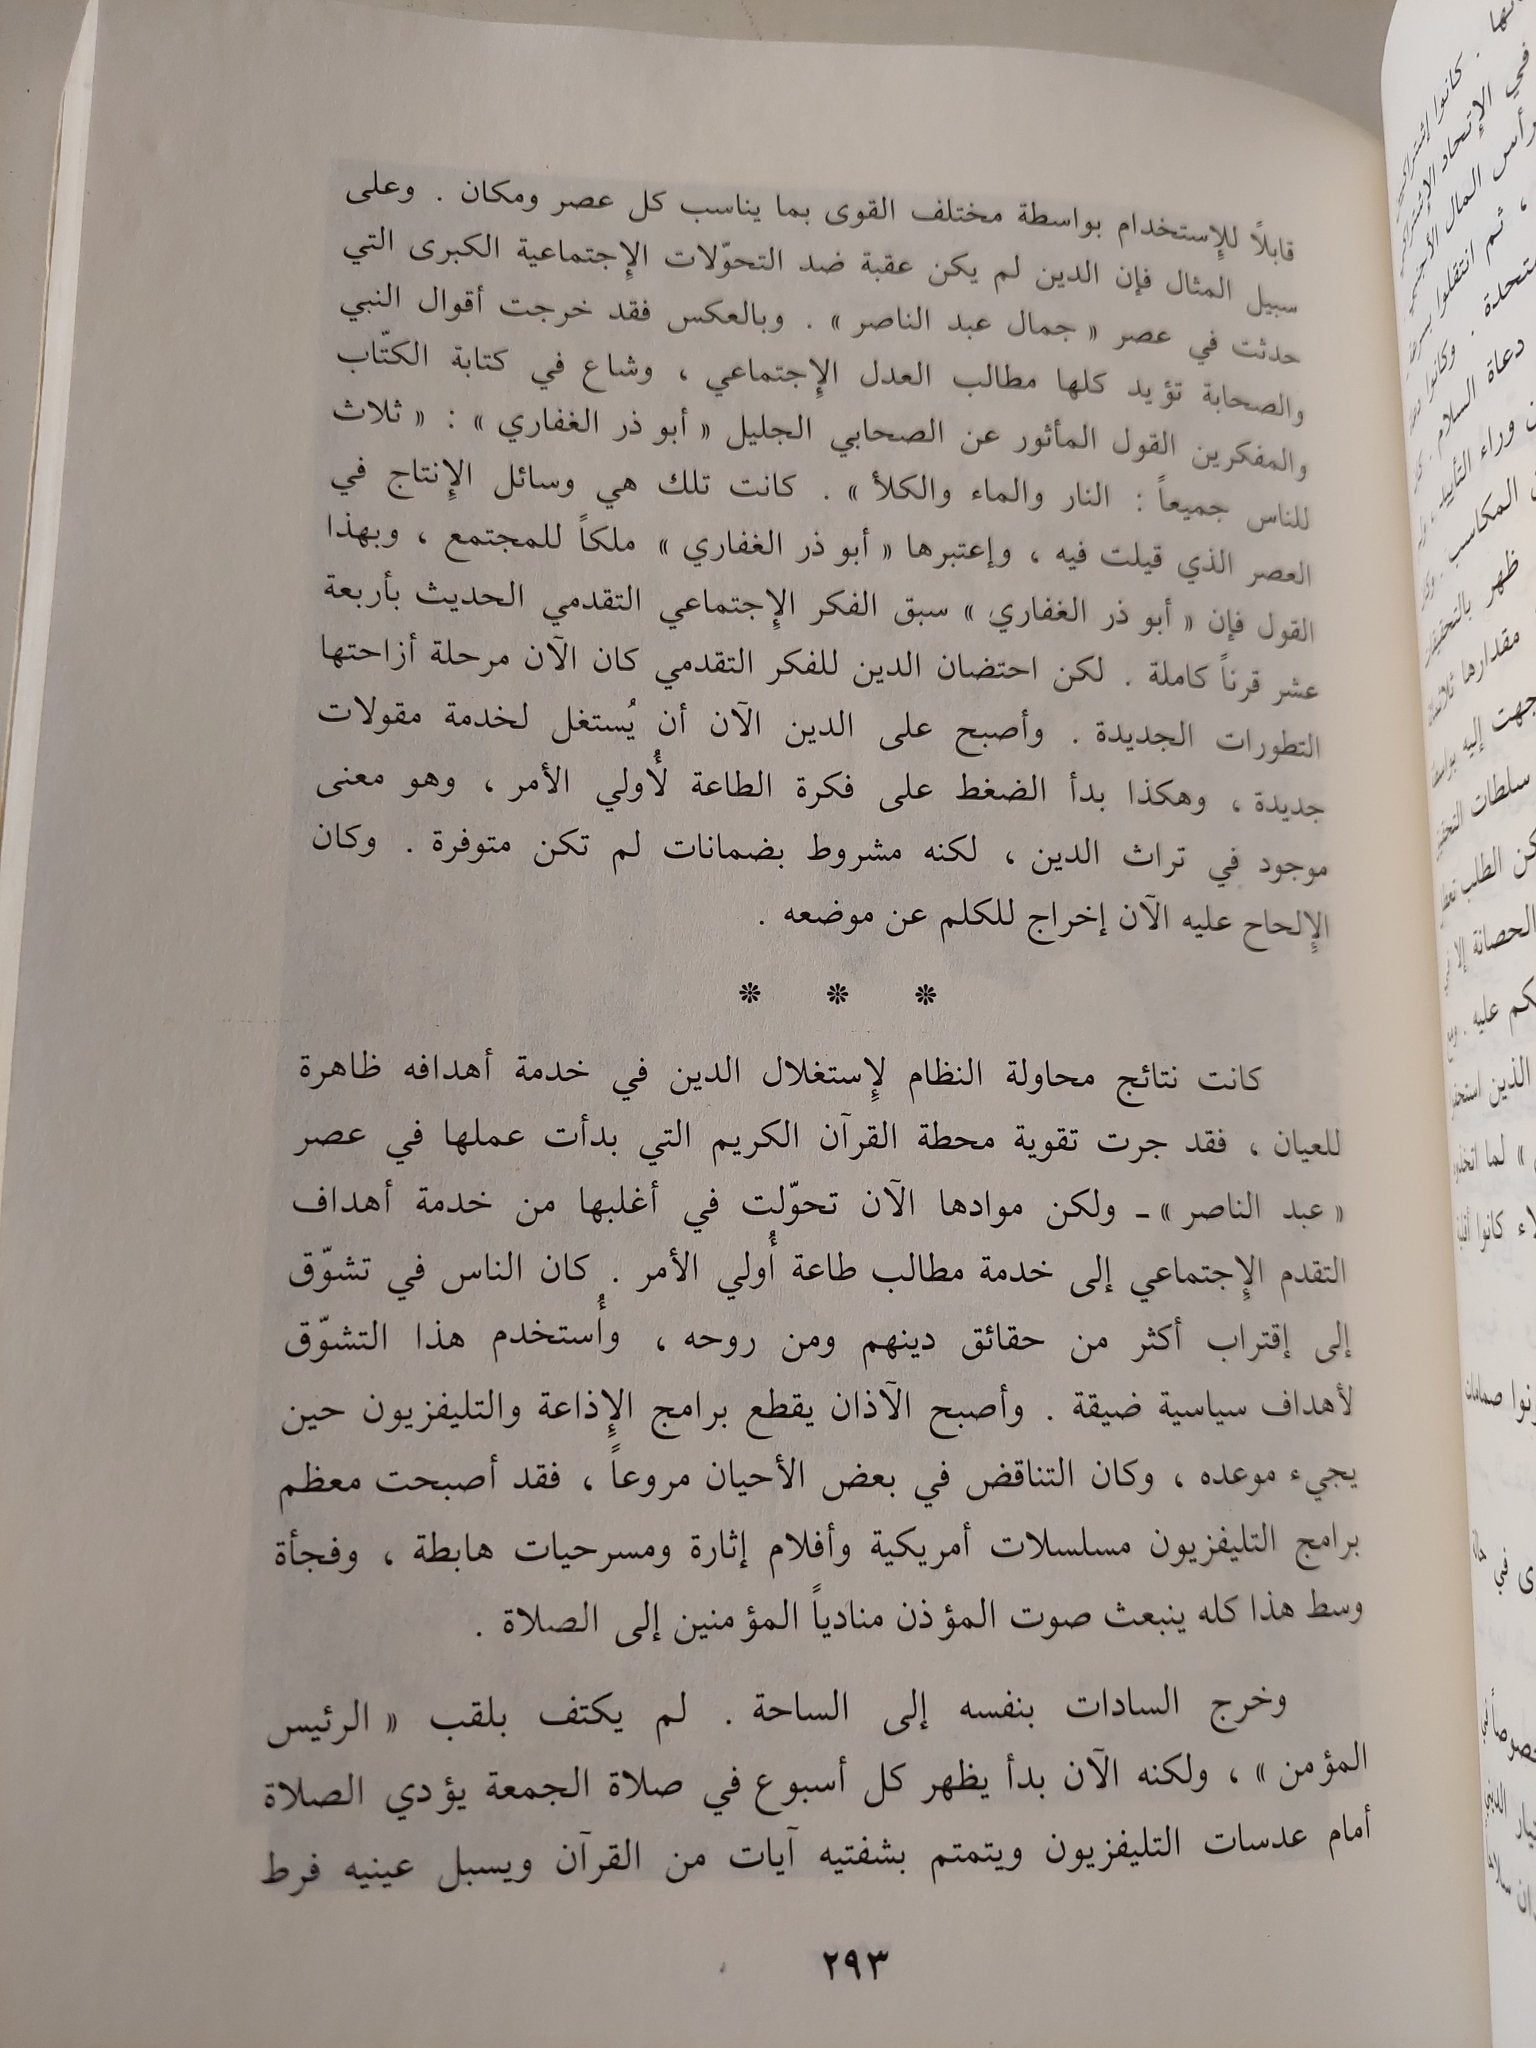 قابلاً للإِستخدام بواسطة مختلف القوى بما يناسب كل عصر ومكان . وعلى
سبيل المثال فإن الدين لم يكن عقبة ضد التحوّلات الإِجتماعية الكبرى التي
حدثت في عصر « جمال عبد الناصر » . وبالعكس فقد خرجت أقوال النبي
والصحابة تؤيد كلها مطالب العدل الإِجتماعي ، وشاع في كتابة الكتّاب
والمفكرين القول المأثور عن الصحابي الجليل « أبو ذر الغفاري » : « ثلاث
للناس جميعاً : النار والماء والكلأ » . كانت تلك هي وسائل الإِنتاج في
العصر الذي قيلت فيه ، وإعتبرها « أبو ذر الغفاري » ملكاً للمجتمع ، وبهذا
القول فإن « أبو ذر الغفاري » سبق الفكر الإِجتماعي التقدمي الحديث بأربعة
عشر قرناً كاملة . لكن احتضان الدين للفكر التقدمي كان الآن مرحلة أزاحتها
التطورات الجديدة . وأصبح على الدين الآن أن يُستغل لخدمة مقولات
جديدة ، وهكذا بدأ الضغط على فكرة الطاعة لأُولي الأمر ، وهو معنى
موجود في تراث الدين ، لكنه مشروط بضمانات لم تكن متوفرة . وكان
الإِلحاح عليه الآن إخراج للكلم عن موضعه .
❊ ❊ ❊
كانت نتائج محاولة النظام لإِستغلال الدين في خدمة أهدافه ظاهرة
للعيان ، فقد جرت تقوية محطة القرآن الكريم التي بدأت عملها في عصر
« عبد الناصر » ـ ولكن موادها الآن تحوّلت في أغلبها من خدمة أهداف
التقدم الإِجتماعي إلى خدمة مطالب طاعة أُولي الأمر . كان الناس في تشوّق
إلى إقتراب أكثر من حقائق دينهم ومن روحه ، وأُستخدم هذا التشوّق
لأهداف سياسية ضيقة . وأصبح الآذان يقطع برامج الإِذاعة والتليفزيون حين
يجيء موعده ، وكان التناقض في بعض الأحيان مروعاً ، فقد أصبحت معظم
برامج التليفزيون مسلسلات أمريكية وأفلام إثارة ومسرحيات هابطة ، وفجأة
وسط هذا كله ينبعث صوت المؤذن منادياً المؤمنين إلى الصلاة .
وخرج السادات بنفسه إلى الساحة . لم يكتف بلقب « الرئيس
المؤمن » ، ولكنه الآن بدأ يظهر كل أسبوع في صلاة الجمعة يؤدي الصلاة
أمام عدسات التليفزيون ويتمتم بشفتيه آيات من القرآن ويسبل عينيه فرط
٢٩٣